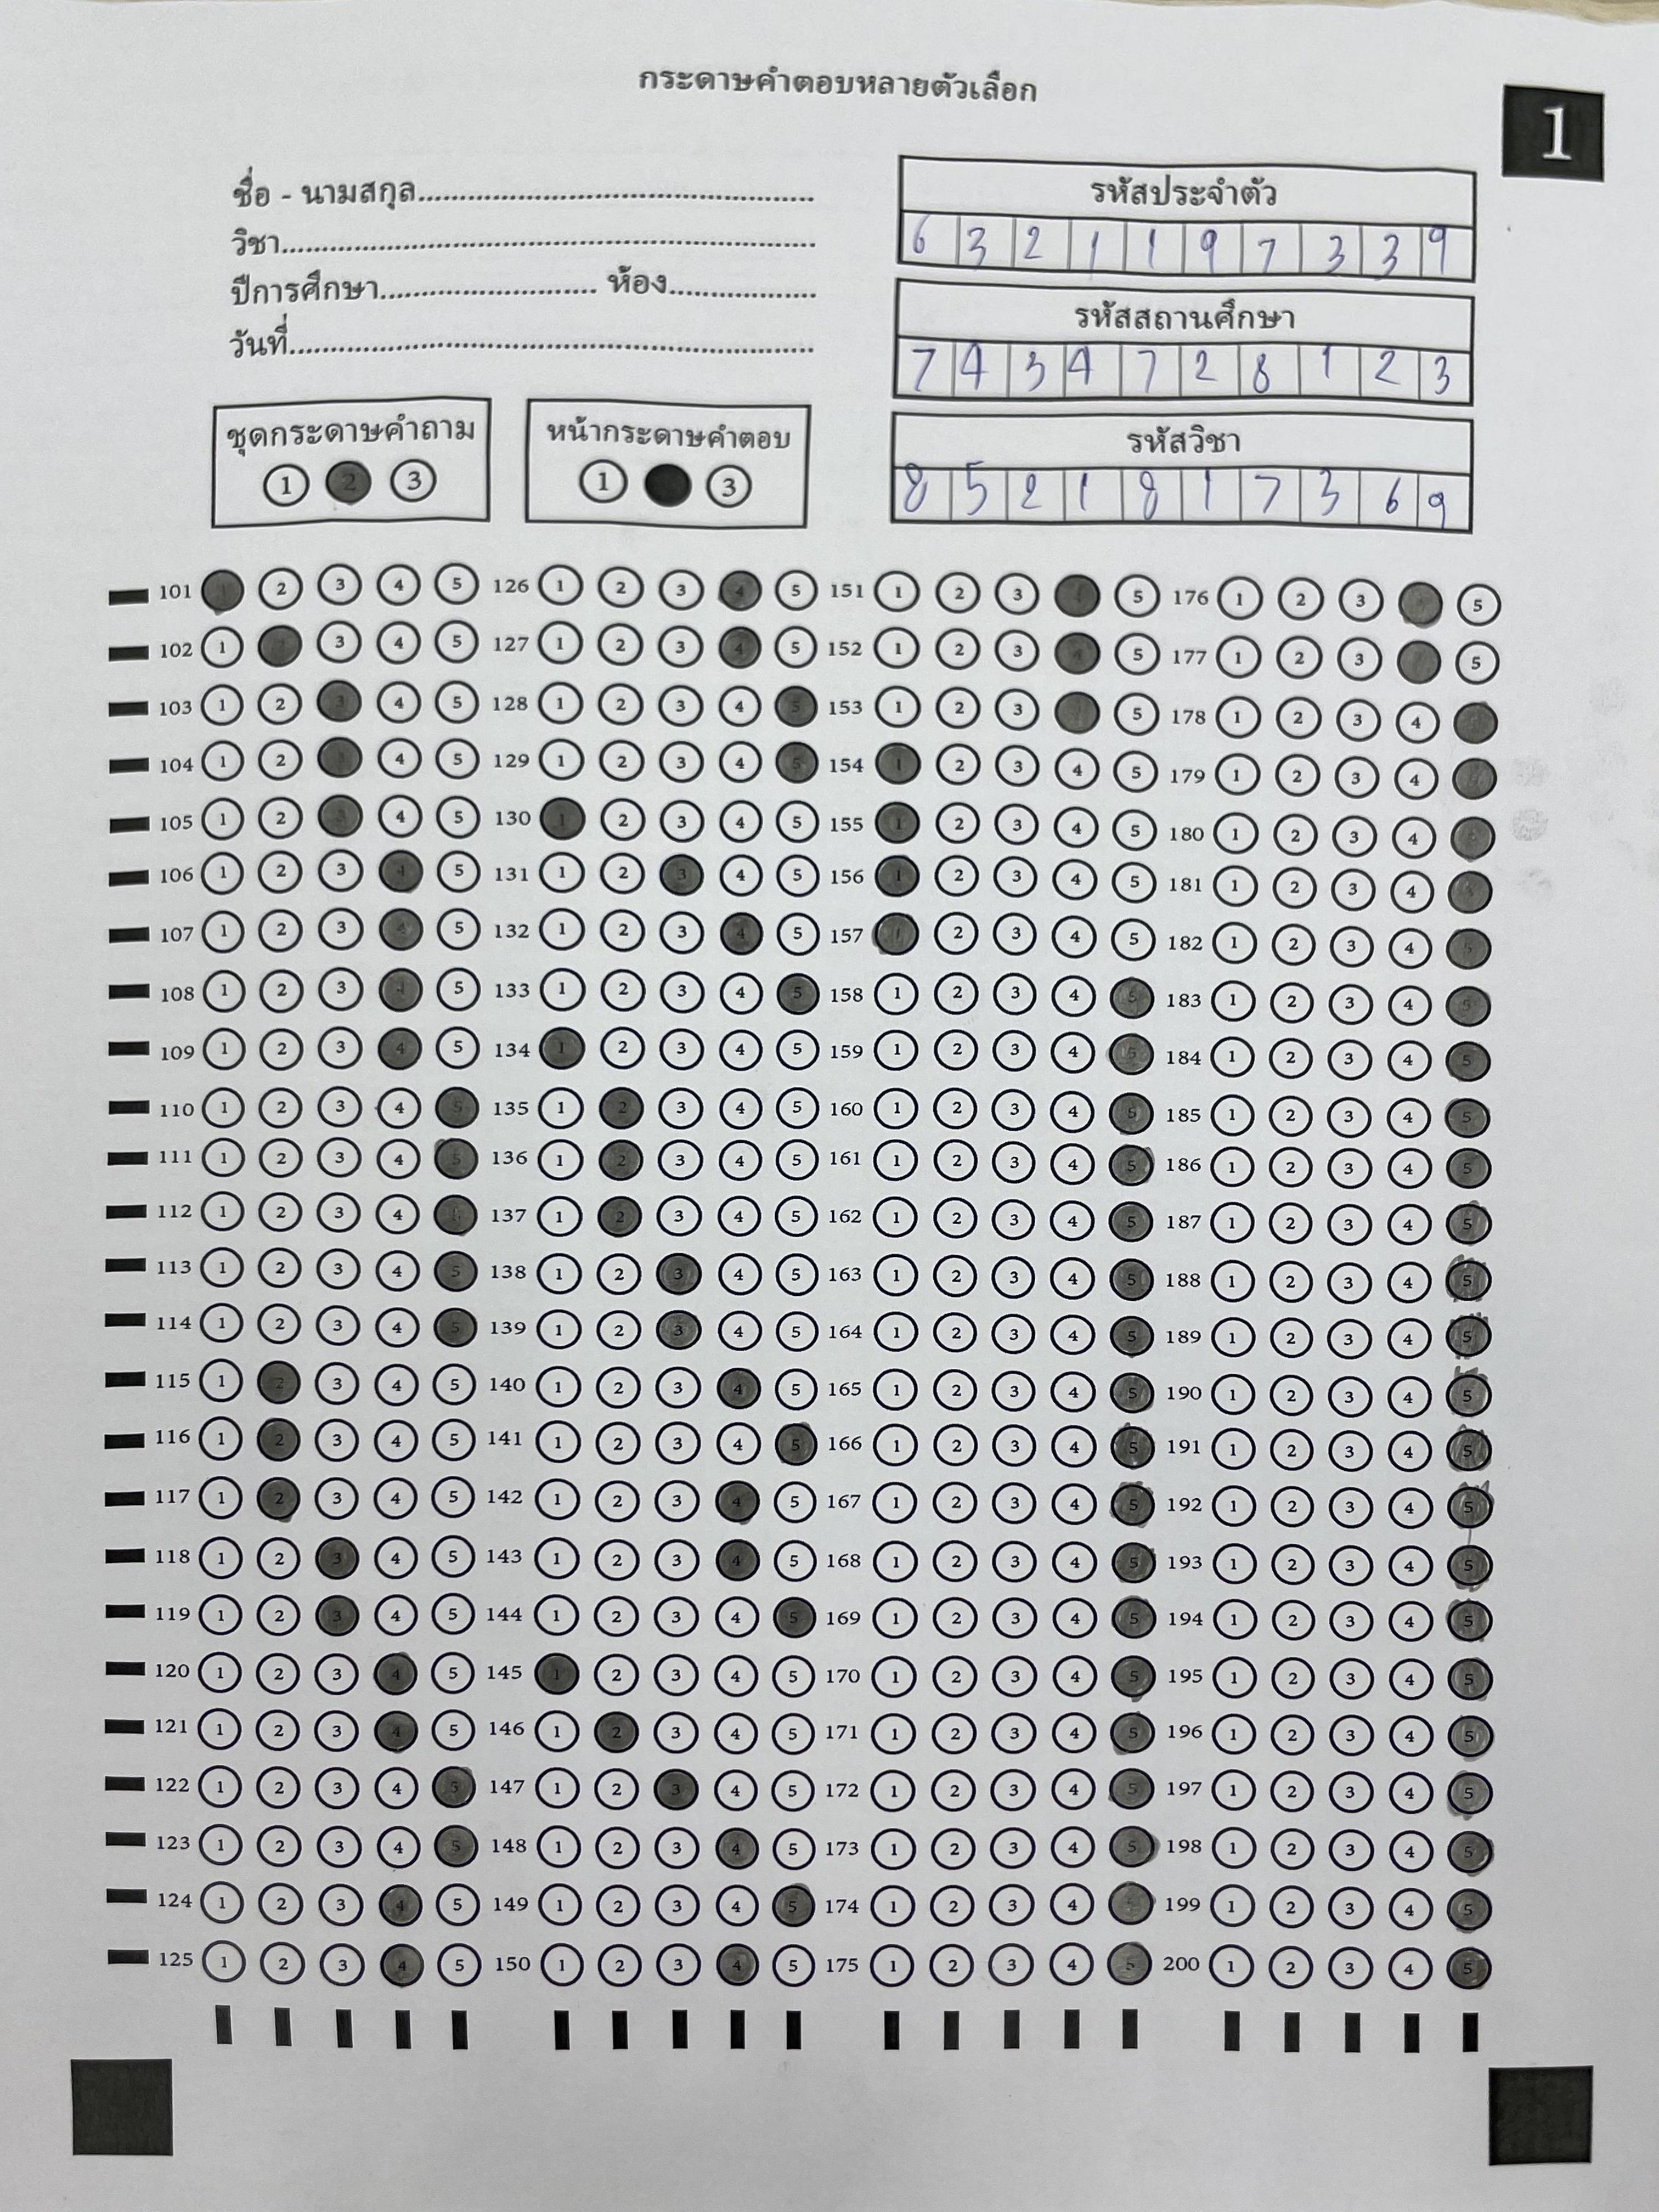 กระดาษคำตอบหลายตัวเลือก
1
ชื่อ - นามสกุล
วิชา
ปีการศึกษา ห้อง
วันที่
รหัสประจำตัว
6 3 2 1 1 9 7 3 3 9
รหัสสถานศึกษา
7 4 3 4 7 2 8 1 2 3
รหัสวิชา
8 5 2 1 8 1 7 3 6 9
ชุดกระดาษคำถาม
1 2 3
หน้ากระดาษคำตอบ
1 3
101 1 2 3 4 5 126 1 2 3 4 5 151 1 2 3 4 5 176 1 2 3 5
102 1 3 4 5 127 1 2 3 4 5 152 1 2 3 4 5 177 1 2 3 5
103 1 2 3 4 5 128 1 2 3 4 5 153 1 2 3 5 178 1 2 3 4
104 1 2 4 5 129 1 2 3 4 5 154 1 2 3 4 5 179 1 2 3 4
105 1 2 3 4 5 130 1 2 3 4 5 155 1 2 3 4 5 180 1 2 3 4
106 1 2 3 4 5 131 1 2 3 4 5 156 1 2 3 4 5 181 1 2 3 4
107 1 2 3 4 5 132 1 2 3 4 5 157 1 2 3 4 5 182 1 2 3 4 5
108 1 2 3 4 5 133 1 2 3 4 5 158 1 2 3 4 5 183 1 2 3 4 5
109 1 2 3 4 5 134 1 2 3 4 5 159 1 2 3 4 5 184 1 2 3 4 5
110 1 2 3 4 5 135 1 2 3 4 5 160 1 2 3 4 5 185 1 2 3 4 5
111 1 2 3 4 5 136 1 2 3 4 5 161 1 2 3 4 5 186 1 2 3 4 5
112 1 2 3 4 5 137 1 2 3 4 5 162 1 2 3 4 5 187 1 2 3 4 5
113 1 2 3 4 5 138 1 2 3 4 5 163 1 2 3 4 5 188 1 2 3 4 5
114 1 2 3 4 5 139 1 2 3 4 5 164 1 2 3 4 5 189 1 2 3 4 5
115 1 2 3 4 5 140 1 2 3 4 5 165 1 2 3 4 5 190 1 2 3 4 5
116 1 2 3 4 5 141 1 2 3 4 5 166 1 2 3 4 5 191 1 2 3 4 5
117 1 2 3 4 5 142 1 2 3 4 5 167 1 2 3 4 5 192 1 2 3 4 5
118 1 2 3 4 5 143 1 2 3 4 5 168 1 2 3 4 5 193 1 2 3 4 5
119 1 2 3 4 5 144 1 2 3 4 5 169 1 2 3 4 5 194 1 2 3 4 5
120 1 2 3 4 5 145 1 2 3 4 5 170 1 2 3 4 5 195 1 2 3 4 5
121 1 2 3 4 5 146 1 2 3 4 5 171 1 2 3 4 5 196 1 2 3 4 5
122 1 2 3 4 5 147 1 2 3 4 5 172 1 2 3 4 5 197 1 2 3 4 5
123 1 2 3 4 5 148 1 2 3 4 5 173 1 2 3 4 5 198 1 2 3 4 5
124 1 2 3 4 5 149 1 2 3 4 5 174 1 2 3 4 5 199 1 2 3 4 5
125 1 2 3 4 5 150 1 2 3 4 5 175 1 2 3 4 5 200 1 2 3 4 5